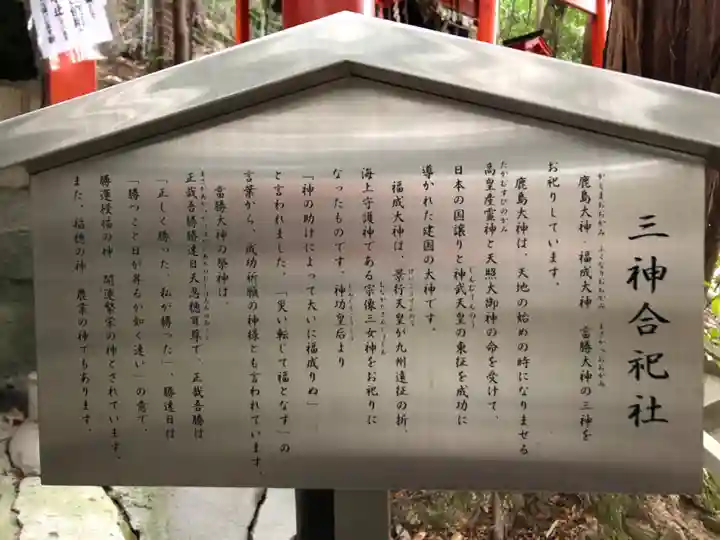 三神合祀社
鹿島大神・福成大神・當勝大神の三神を
お祀りしています。
鹿島大神は、天地の始めの時になりませる
高皇産霊神と天照大御神の命を受けて、
日本の国譲りと神武天皇の東征を成功に
導かれた建国の大神です。
福成大神は、景行天皇が九州遠征の折、
海上守護神である宗像三女神をお祀りに
なったものです。神功皇后より
「神の助けによって大いに福成りぬ」
と言われました。「災い転じて福となす」の
言葉から、成功祈願の神様とも言われています。
當勝大神の祭神は、
正哉吾勝勝速日天忍穂耳尊で、正哉吾勝は
「正しく勝った、私が勝った」、勝速日は
「勝つこと日が昇るが如く速い」の意で、
勝運授福の神 開運繁栄の神とされています。
また、稲穂の神 農業の神でもあります。